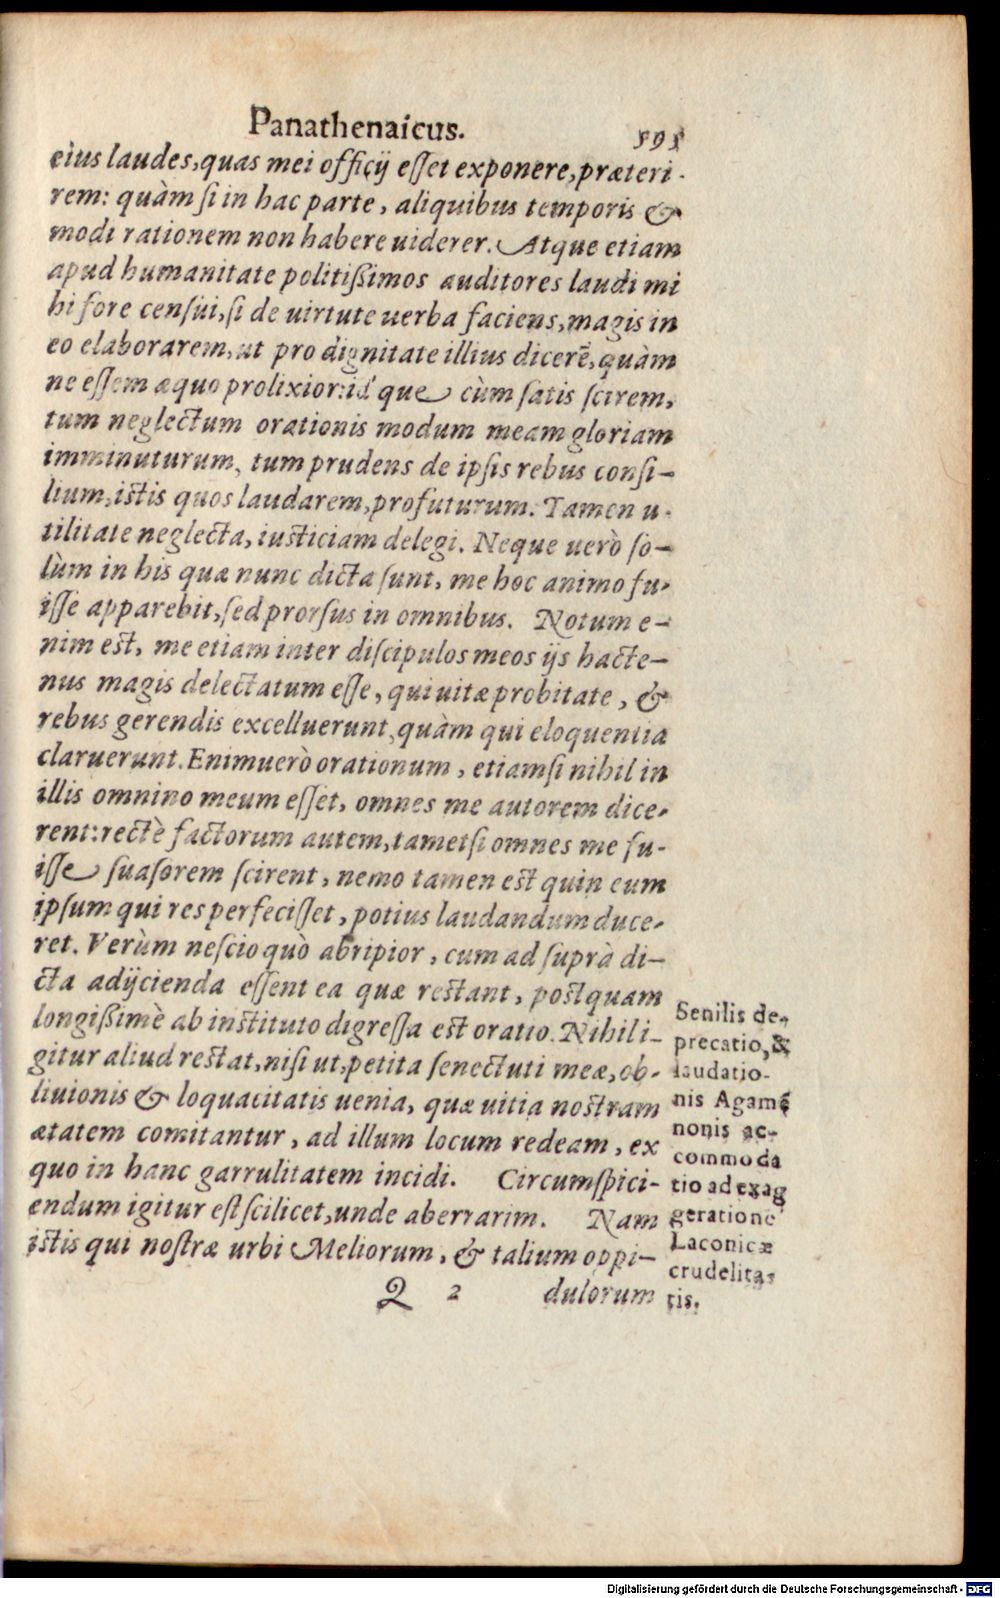 Panathenaicus. 595
eius laudes, quas mei officij eſſet exponere, præteri-
rem: quàm ſi in hac parte, aliquibus temporis &
modi rationem non habere uiderer. Atque etiam
apud humanitate politißimos auditores laudi mi
hi fore cenſui, ſi de uirtute uerba faciens, magis in
eo elaborarem, ut pro dignitate illius dicerē, quàm
ne eſſem æquo prolixior: id que cùm ſatis ſcirem,
tum neglectum orationis modum meam gloriam
imminuturum, tum prudens de ipſis rebus conſi-
lium, istis quos laudarem, profuturum. Tamen u-
tilitate neglecta, iusticiam delegi. Neque uerò ſo-
lùm in his quæ nunc dicta ſunt, me hoc animo fu-
iſſe apparebit, ſed prorſus in omnibus. Notum e-
nim est, me etiam inter diſcipulos meos ijs hacte-
nus magis delectatum eſſe, qui uitæ probitate, &
rebus gerendis excelluerunt, quàm qui eloquentia
claruerunt. Enimuerò orationum, etiamſi nihil in
illis omnino meum eſſet, omnes me autorem dice-
rent: rectè factorum autem, tametſi omnes me fu-
iſſe ſuaſorem ſcirent, nemo tamen est quin eum
ipſum qui res perfeciſſet, potius laudandum duce-
ret. Verùm neſcio quò abripior, cum ad ſuprà di-
cta adijcienda eſſent ea quæ restant, postquam
longißimè ab instituto digreſſa est oratio. Nihil i-
gitur aliud restat, niſi ut, petita ſenectuti meæ, ob-
liuionis & loquacitatis uenia, quæ uitia nostram
ætatem comitantur, ad illum locum redeam, ex
quo in hanc garrulitatem incidi. Circumſpici-
endum igitur eſt ſcilicet, unde aberrarim. Nam
istis qui noſtræ urbi Meliorum, & talium oppi-
Q 2 dulorum
Senilis de-
precatio, &
laudatio-
nis Agamē
nonis ac-
commoda
tio ad exag
gerationē
Laconicæ
crudelita-
tis.
Digitalisierung gefördert durch die Deutsche Forschungsgemeinschaft - DFG